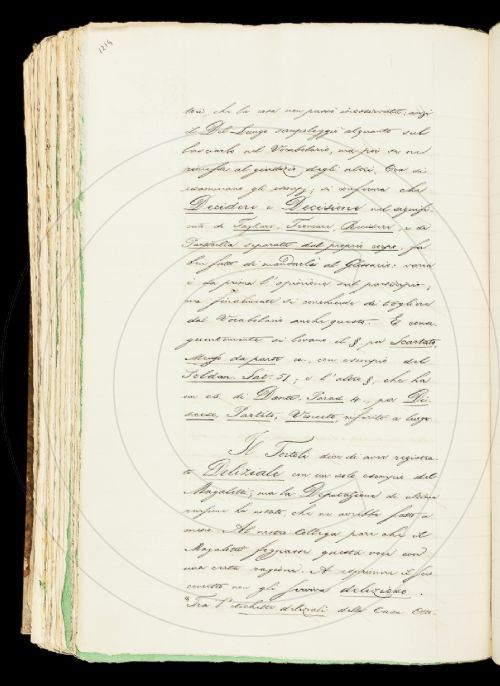 1214
tori, che la cosa non passi inosservata; anzi
il Del-Lungo campeggiò alquanto sul
lasciarlo nel Vocabolario, ma poi se ne
rimesse al giudizio degli altri. Ora si
esaminano gli esempj; si conferma che
Decidere e Decisione nel signifi-
cato di Tagliare, Troncare, Recidere, e di
Particella separata dal proprio corpo, fu
ben fatto di mandarle al Glossario: varia
è da prima l'opinione sul participio,
ma finalmente si conchiude di togliere
dal Vocabolario anche questo. E conse-
guentemente si levano il §. per Scartato,
Messo da parte ec., con esempio del
Soldan. Sat. 51; e l'altro §., che ha
un es. di Dante, Parad. 4., per Di-
sceso, Partito, Venuto, riferito a luogo.
Il Tortoli dice di aver registra-
to Deliziale con un solo esempio del
Magalotti; ma la Deputazione di ultima
revisione ha notato, che se ne sarebbe fatto a
meno. Al nostro Collega pare che il
Magalotti foggiasse questa voce con
una certa ragione. A esprimere il suo
concetto non gli serviva delizioso.
"Tra l'Architetti deliziali della Casa Otto-